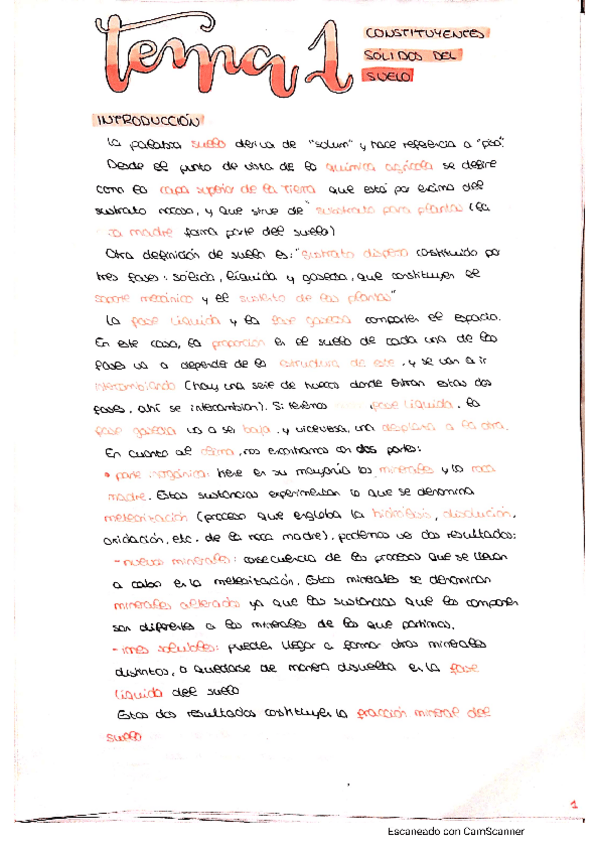 tema 1
CONSTITUYENTES
SÓLIDOS DEL
SUELO
INTRODUCCIÓN
La palabra suelo deriva de "solum" y hace referencia a "piso".
Desde el punto de vista de la química agrícola se define
como la capa superior de la tierra que está por encima del
sustrato rocoso, y que sirve de "sustrato para plantas (la
roca madre forma parte del suelo)
Otra definición de suelo es: "sustrato disperso constituido por
tres fases: sólida, líquida y gaseosa, que constituyen el
soporte mecánico y el sustento de las plantas"
La fase líquida y la fase gaseosa comparten el espacio.
En este caso, la proporción en el suelo de cada una de las
fases va a depender de la estructura de este, y se van a ir
intercambiando (hay una serie de huecos donde entran estas dos
fases, ahí se intercambian). Si tenemos fase líquida, la
fase gaseosa va a ser baja, y viceversa, una desplaza a la otra.
En cuanto al nos encontramos con dos partes:
• parte inorgánica: tiene en su mayoría los minerales y la roca
madre. Estas sustancias experimentan lo que se denomina
meteorización (proceso que engloba la hidrólisis, disolución,
oxidación, etc. de la roca madre), podemos ver dos resultados:
- nuevos minerales: consecuencia de los procesos que se llevan
a cabo en la meteorización. Estos minerales se denominan
minerales alterados ya que las sustancias que los componen
son diferentes a los minerales de los que partimos.
- iones solubles: pueden llegar a formar otros minerales
distintos, o quedarse de manera disuelta en la fase
líquida del suelo
Estos dos resultados constituyen la fracción mineral del
suelo
1
Escaneado con CamScanner